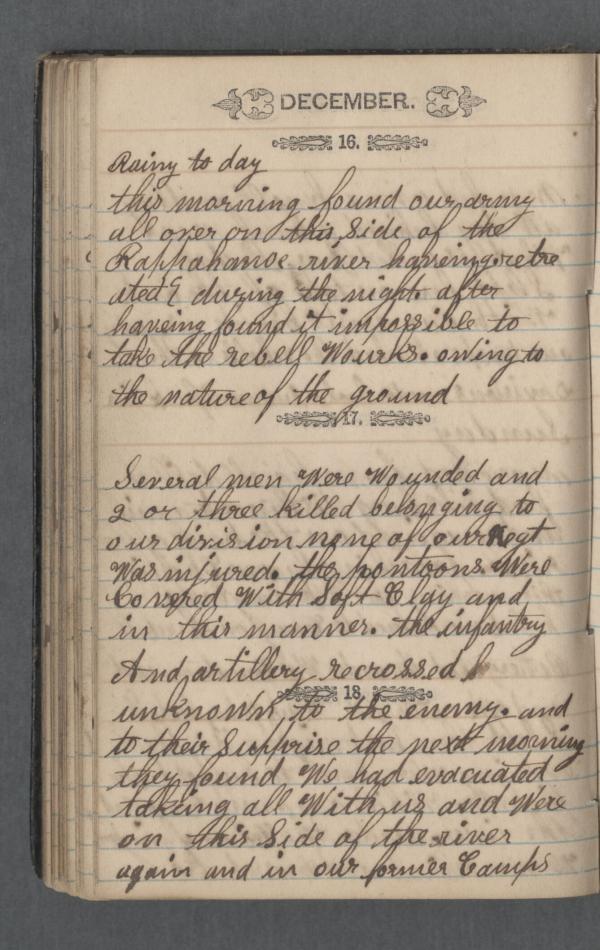 DECEMBER.
16.
Rainy to day
this morning found our army
all over on this Side of the
Rappahanoc river haveing retre
ated during the night. after
haveing found it impossible to
take the rebell Wourks. owing to
the nature of the ground
17.
Several men Were Wounded and
2 or three killed belonging to
our division none of our Regt
Was injured. the pontoons Were
Covered With Soft Clay and
in this manner. the infantry
And artillery recrossed
18.
unknown to the enemy. and
to their Supprise the next morning
they found We had evacuated
takeing all With us and Were
on this Side of the river
again and in our former Camps